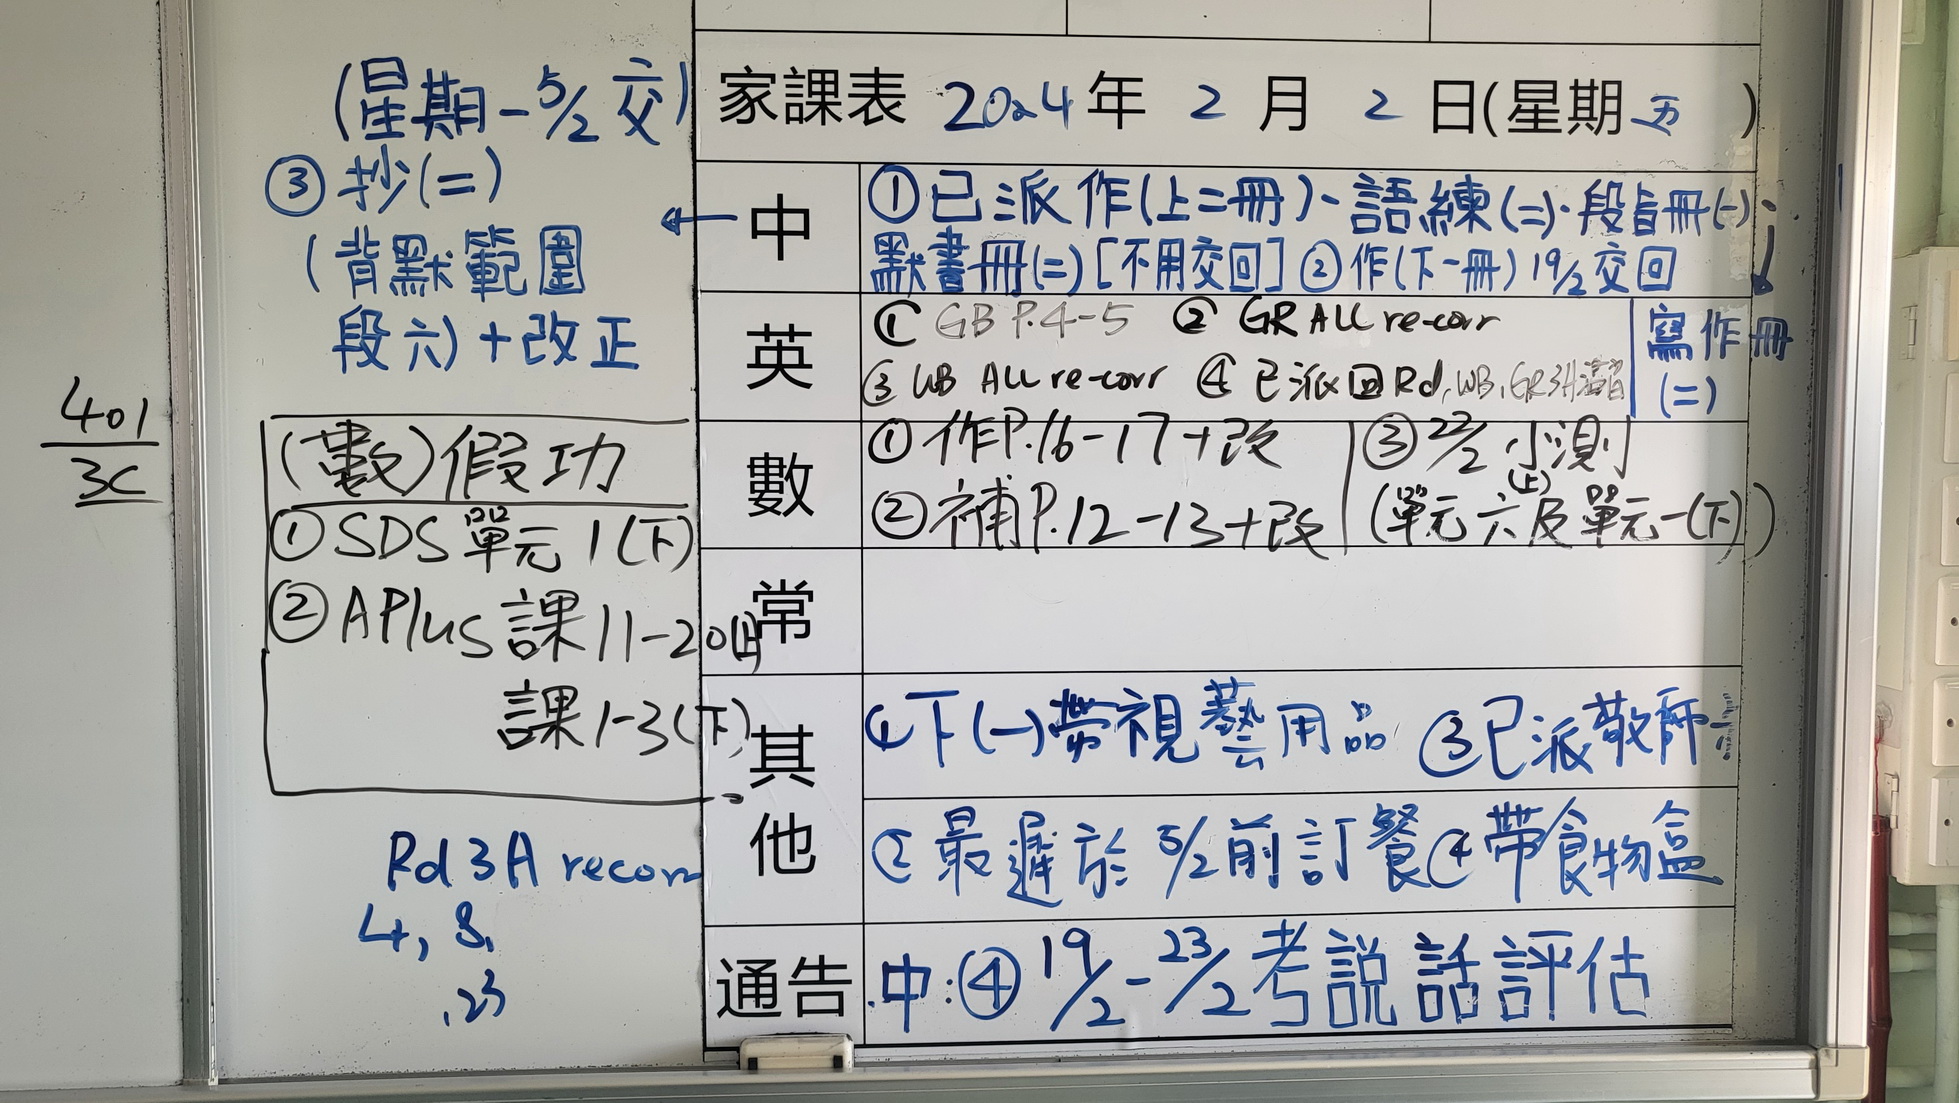 家課表 2024年 2 月 2 日(星期五)
中
①已派作(上二冊)、語練(二)、段旨冊(一)、
默書冊(二)[不用交回]②作(下一冊)19/2交回
寫作冊
(二)
(星期一5/2交)
③抄(二)
(背默範圍
段六)+改正
英
① GB P.4-5 ② GR ALL re-corr
③ WB ALL re-corr ④ 已派回Rd, WB, GR
數
①作P.16-17+改
②補P.12-13+改
③22/2小測
(單元六(上)及單元一(下))
常
其他
①下(一)帶視藝用品 ③已派敬師
②最遲於5/2前訂餐④帶食物盒
通告
中:④19/2-23/2考說話評估
401
3C
(數)假功
①SDS單元1(下)
②APlus課11-20(上)
課1-3(下)
Rd 3A recorr
4, 8,
,23